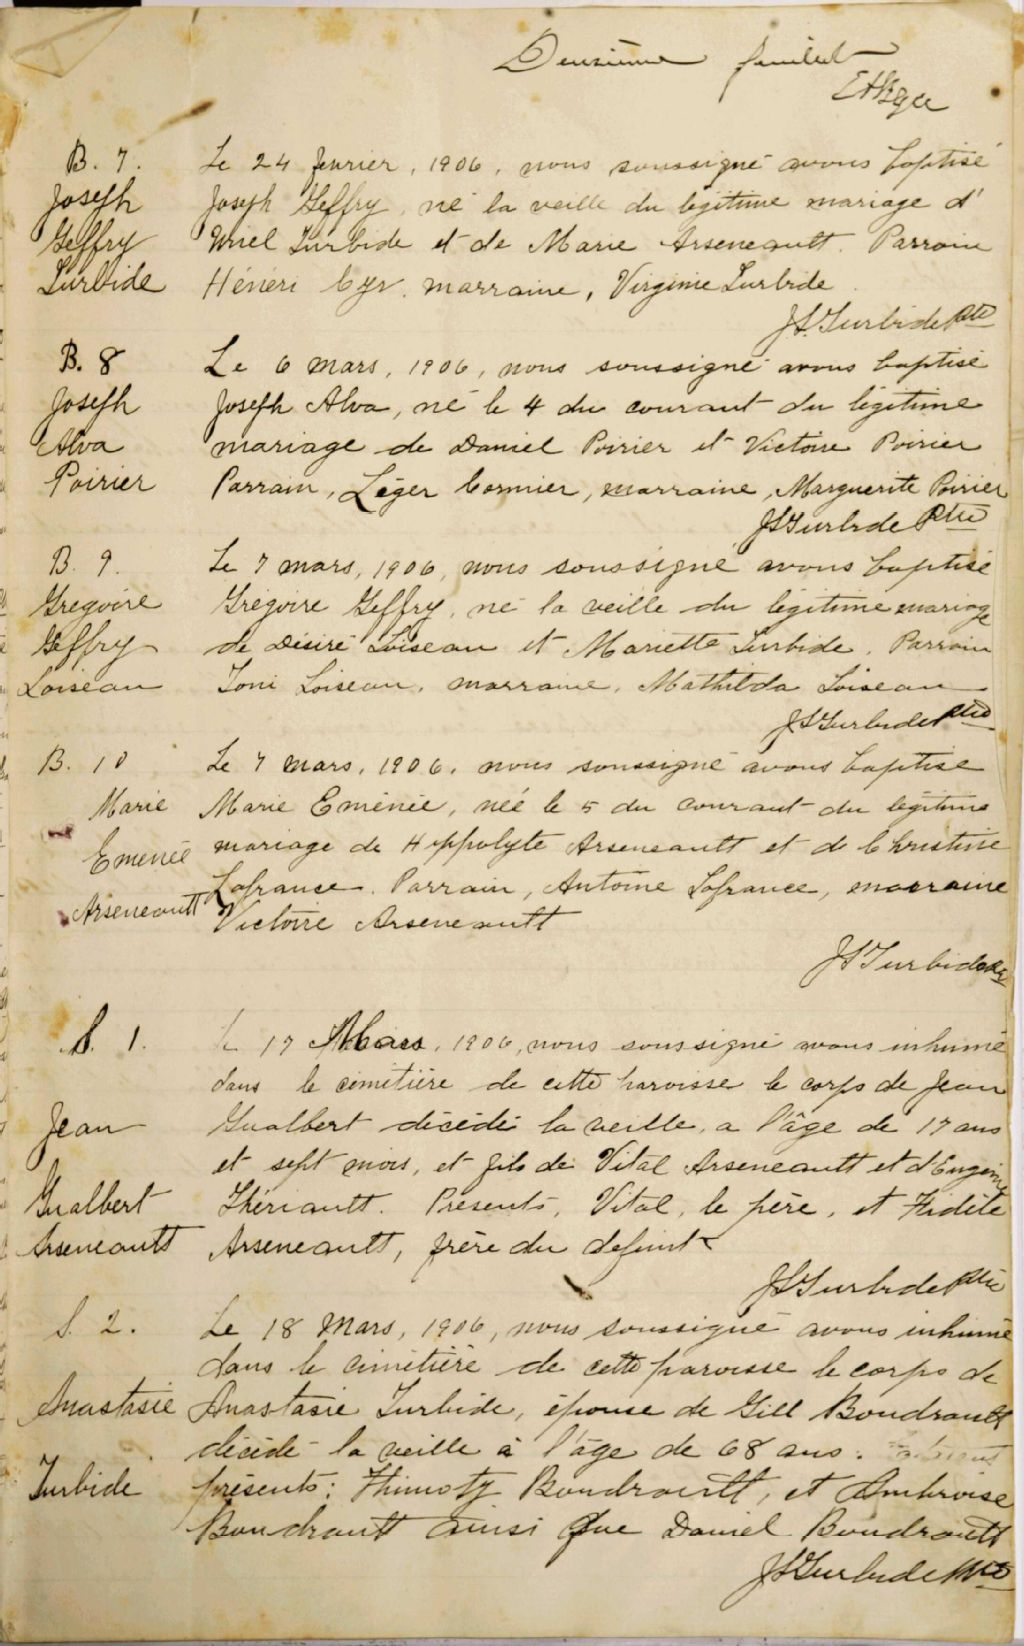 Deuxième feuillet
B. 7.
Joseph
Geffry
Turbide
Le 24 fevrier, 1906, nous soussigné avons baptisé
Joseph Geffry, né la veille du légitime mariage d'
Uriel Turbide et de Marie Arseneault. Parrain
Hénéri Cyr, marraine, Virginie Turbide.
JSTurbide Ptre
B. 8
Joseph
Alva
Poirier
Le 6 mars, 1906, nous soussigné avons baptisé
Joseph Alva, né le 4 du courant du légitime
mariage de Daniel Poirier et Victoire Poirier
Parrain, Léger Cormier, marraine, Marguerite Poirier
JSTurbide Ptre
B. 9.
Gregoire
Geffry
Loiseau
Le 7 mars, 1906, nous soussigné avons baptisé
Grégoire Geffry, né la veille du légitime mariage
de Désiré Loiseau et Mariette Turbide. Parrain
Toni Loiseau, marraine, Mathilda Loiseau
JSTurbide Ptre
B. 10
Marie
Emenée
Arseneault
Le 7 mars, 1906, nous soussigné avons baptisé
Marie Eménée, née le 5 du courant du légitime
mariage de Hyppolyte Arseneault et de Christine
Lafrance. Parrain, Antoine Lafrance, marraine
Victoire Arseneault
JSTurbide Ptre
S. 1.
Jean
Gualbert
Arseneault
Le 17 Mars, 1906, nous soussigné avons inhumé
dans le cimetière de cette paroisse le corps de Jean
Gualbert décédé la veille, a l'âge de 17 ans
et sept mois, et fils de Vital Arseneault et d'Eugenie
Thériault. Présents, Vital, le père, et Fidèle
Arseneault, frère du defunt
JSTurbide Ptre
S. 2.
Anastasie
Turbide
Le 18 Mars, 1906, nous soussigné avons inhumé
dans le cimetière de cette paroisse le corps de
Anastasie Turbide, épouse de Gill Boudrault
décédé la veille à l'âge de 68 ans.
présents: Thimoty Boudrault, et Ambroise
Boudrault ainsi que Daniel Boudrault
JSTurbide Ptre